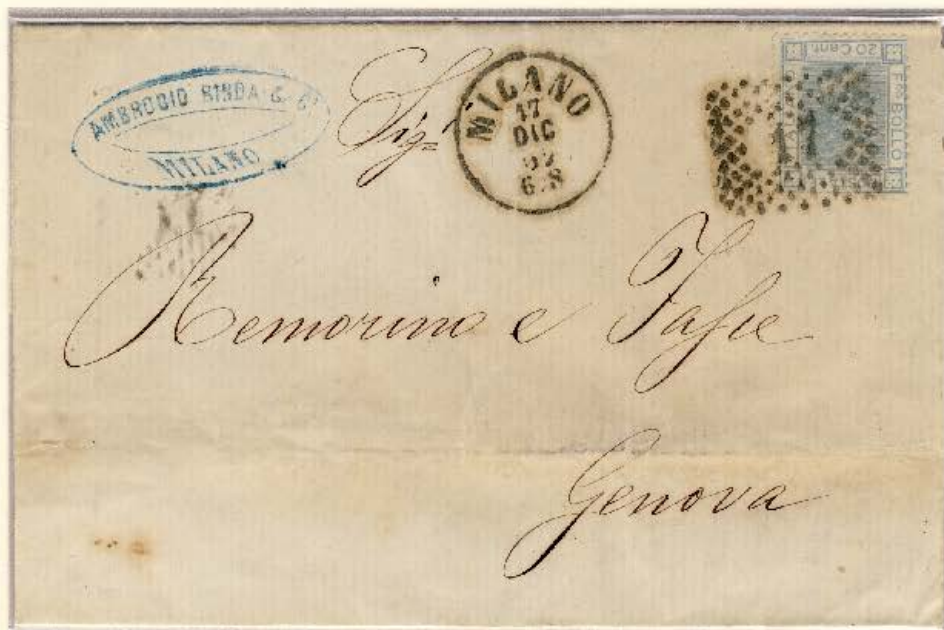 AMBROGIO BINDA & Cº
MILANO
Sigʳⁱ
MILANO
17
DIC
6-8
20 Cent.
Fco BOLLO
Remorino e
Genova